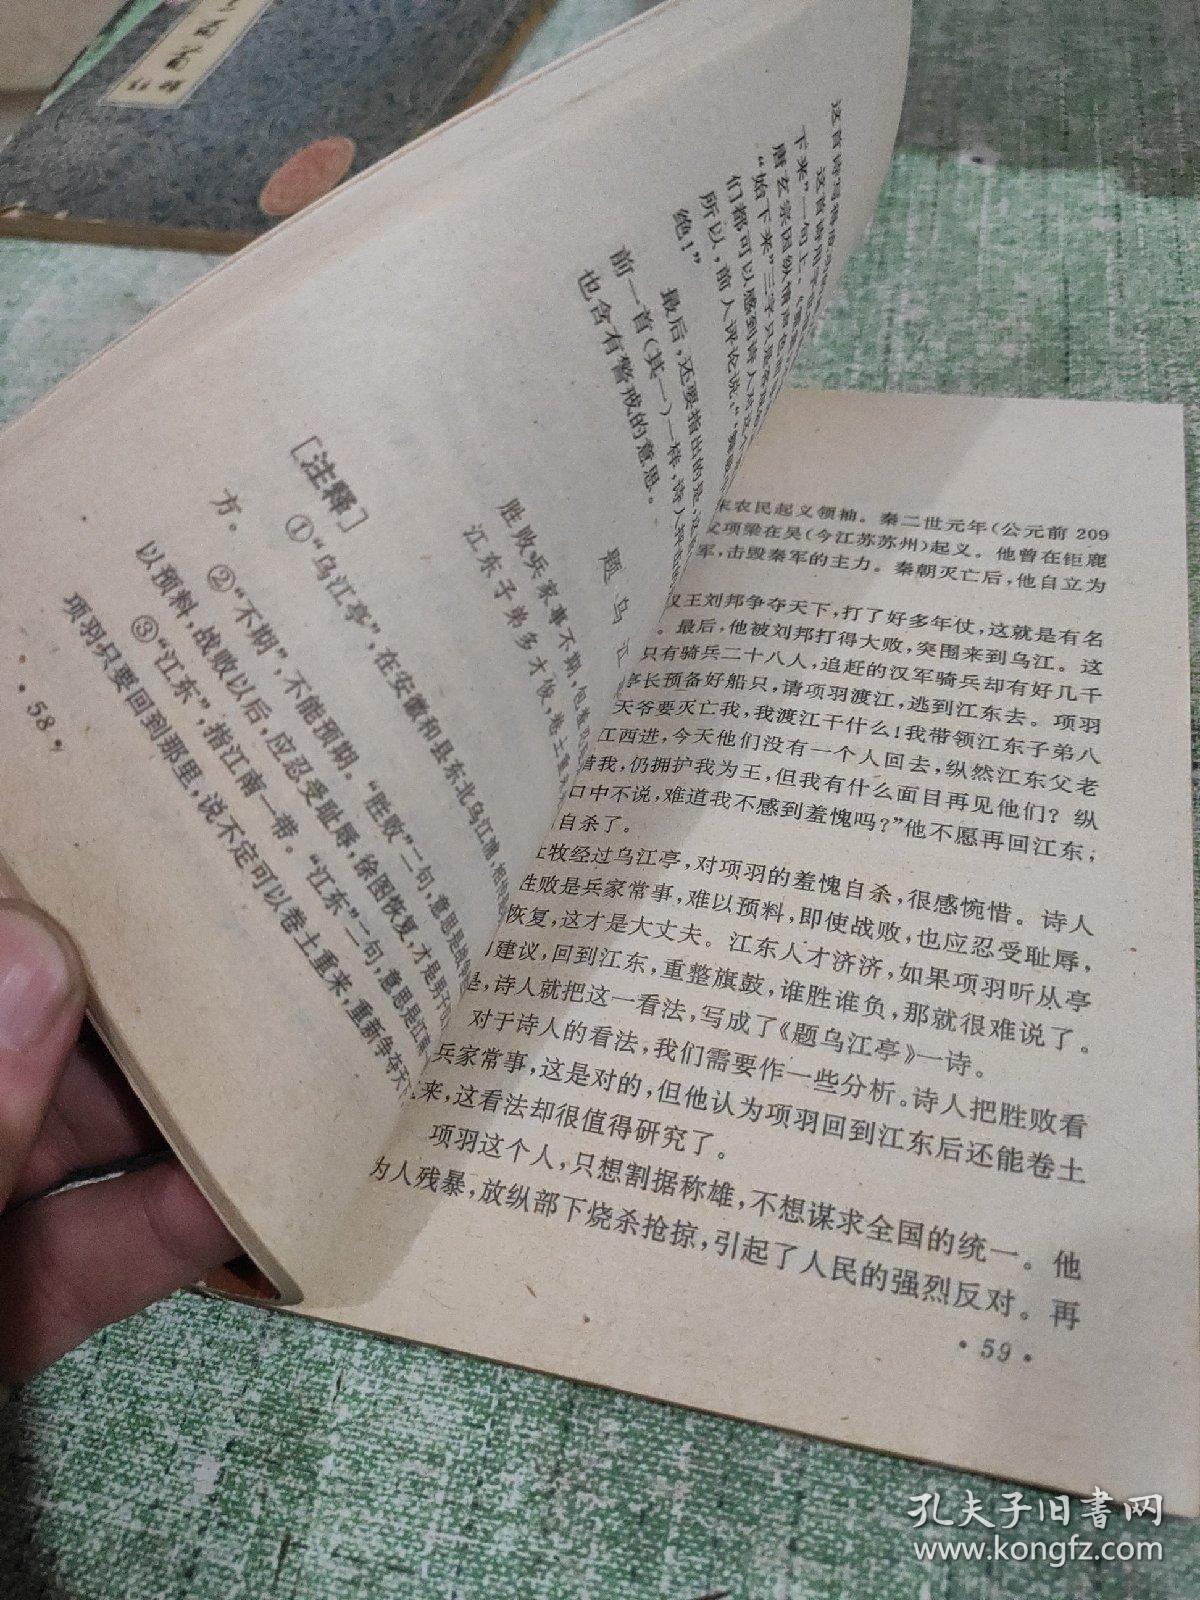 下来”一句上：“
唐玄宗因纵情声色而
“始下来”三字
们都可以感到诗人对这
所以，前人评论说：“
绝！”
最后，还要指出的是，
前一首（其一）一样，诗人
也含有警戒的意思。
题乌江
胜败兵家事不期，包羞忍
江东子弟多才俊，卷土重
［注释］
①“乌江亭”，在安徽和县东北乌江浦，相传
方。
②“不期”，不能预期。“胜败”二句，意思是战争的
以预料，战败以后，应忍受耻辱，徐图恢复，才是男子
③“江东”，指江南一带。“江东”二句，意思是江南
项羽只要回到那里，说不定可以卷土重来，重新争夺天
·58·
末农民起义领袖。秦二世元年（公元前209
父项梁在吴（今江苏苏州）起义。他曾在钜鹿
军，击毁秦军的主力。秦朝灭亡后，他自立为
汉王刘邦争夺天下，打了好多年仗，这就是有名
。最后，他被刘邦打得大败，突围来到乌江。这
只有骑兵二十八人，追赶的汉军骑兵却有好几千
亭长预备好船只，请项羽渡江，逃到江东去。项羽
天爷要灭亡我，我渡江干什么！我带领江东子弟八
江西进，今天他们没有一个人回去，纵然江东父老
我，仍拥护我为王，但我有什么面目再见他们？纵
口中不说，难道我不感到羞愧吗？”他不愿再回江东；
自杀了。
杜牧经过乌江亭，对项羽的羞愧自杀，很感惋惜。诗人
胜败是兵家常事，难以预料，即使战败，也应忍受耻辱，
恢复，这才是大丈夫。江东人才济济，如果项羽听从亭
建议，回到江东，重整旗鼓，谁胜谁负，那就很难说了。
是，诗人就把这一看法，写成了《题乌江亭》一诗。
对于诗人的看法，我们需要作一些分析。诗人把胜败看
兵家常事，这是对的，但他认为项羽回到江东后还能卷土
来，这看法却很值得研究了。
项羽这个人，只想割据称雄，不想谋求全国的统一。他
为人残暴，放纵部下烧杀抢掠，引起了人民的强烈反对。再
·59·
孔夫子旧书网
www.kongfz.com